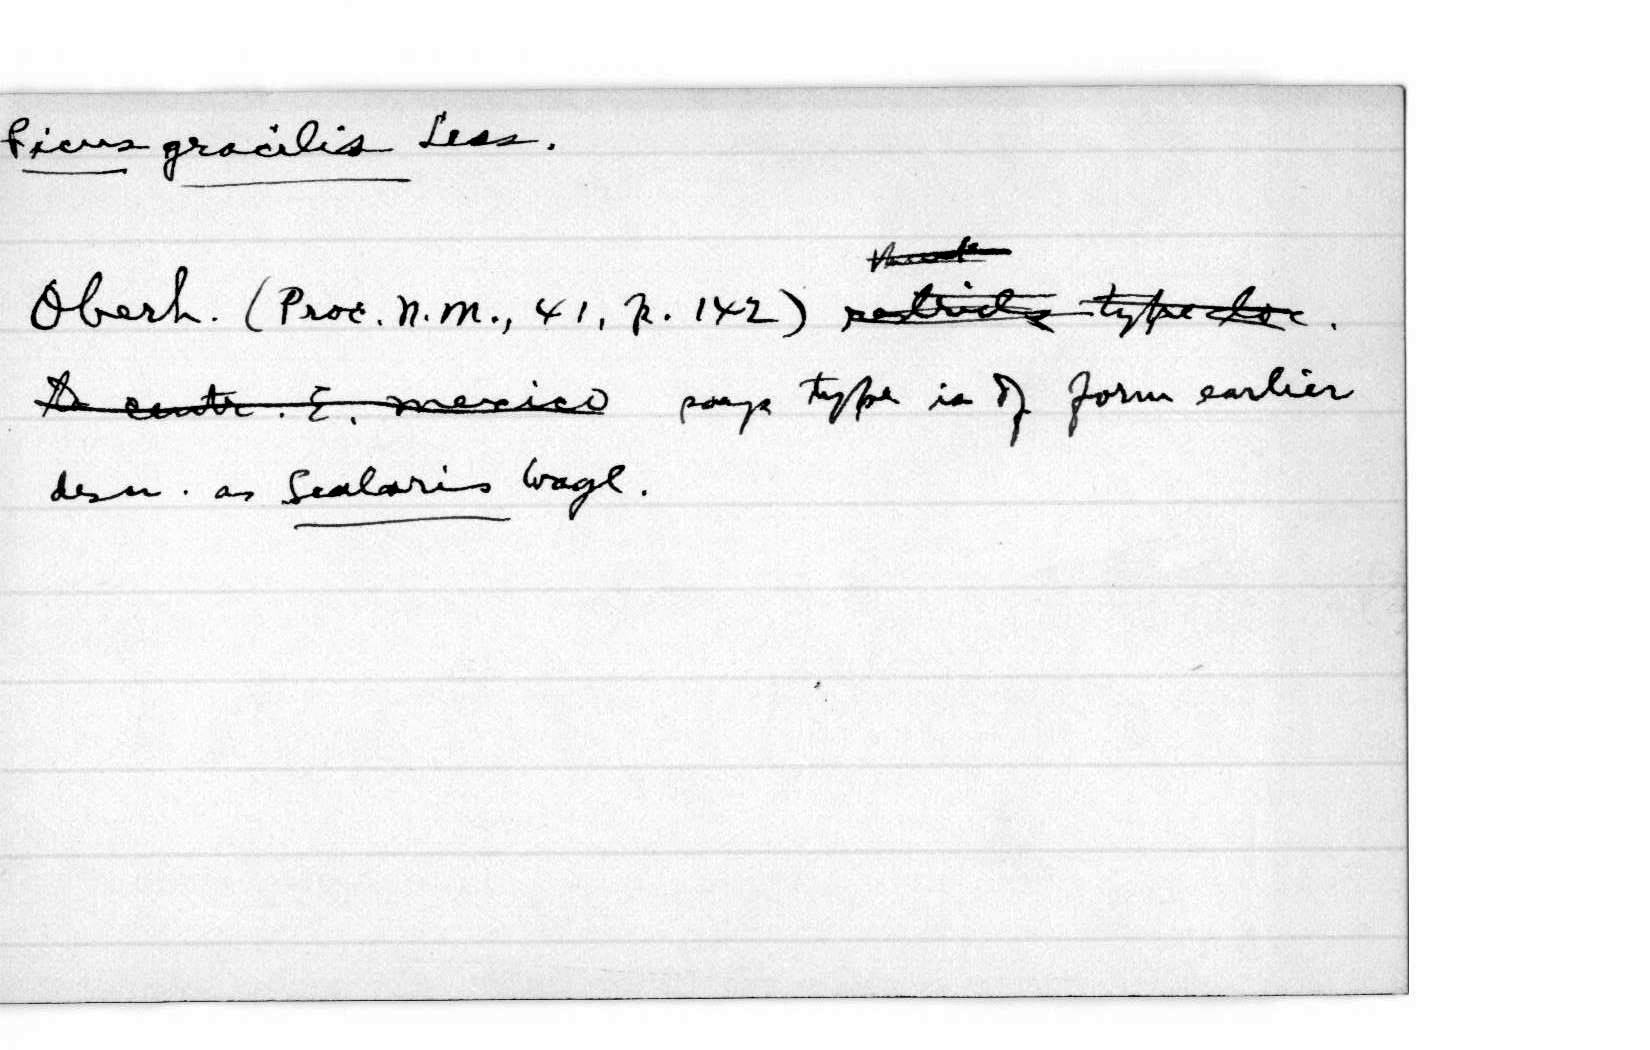 Picus gracilis Less.
Oberh. (Proc. N.M., 41, p. 142) restricts type loc.
to centr. E. Mexico says type is of form earlier
descr. as Scalaris Wagl.